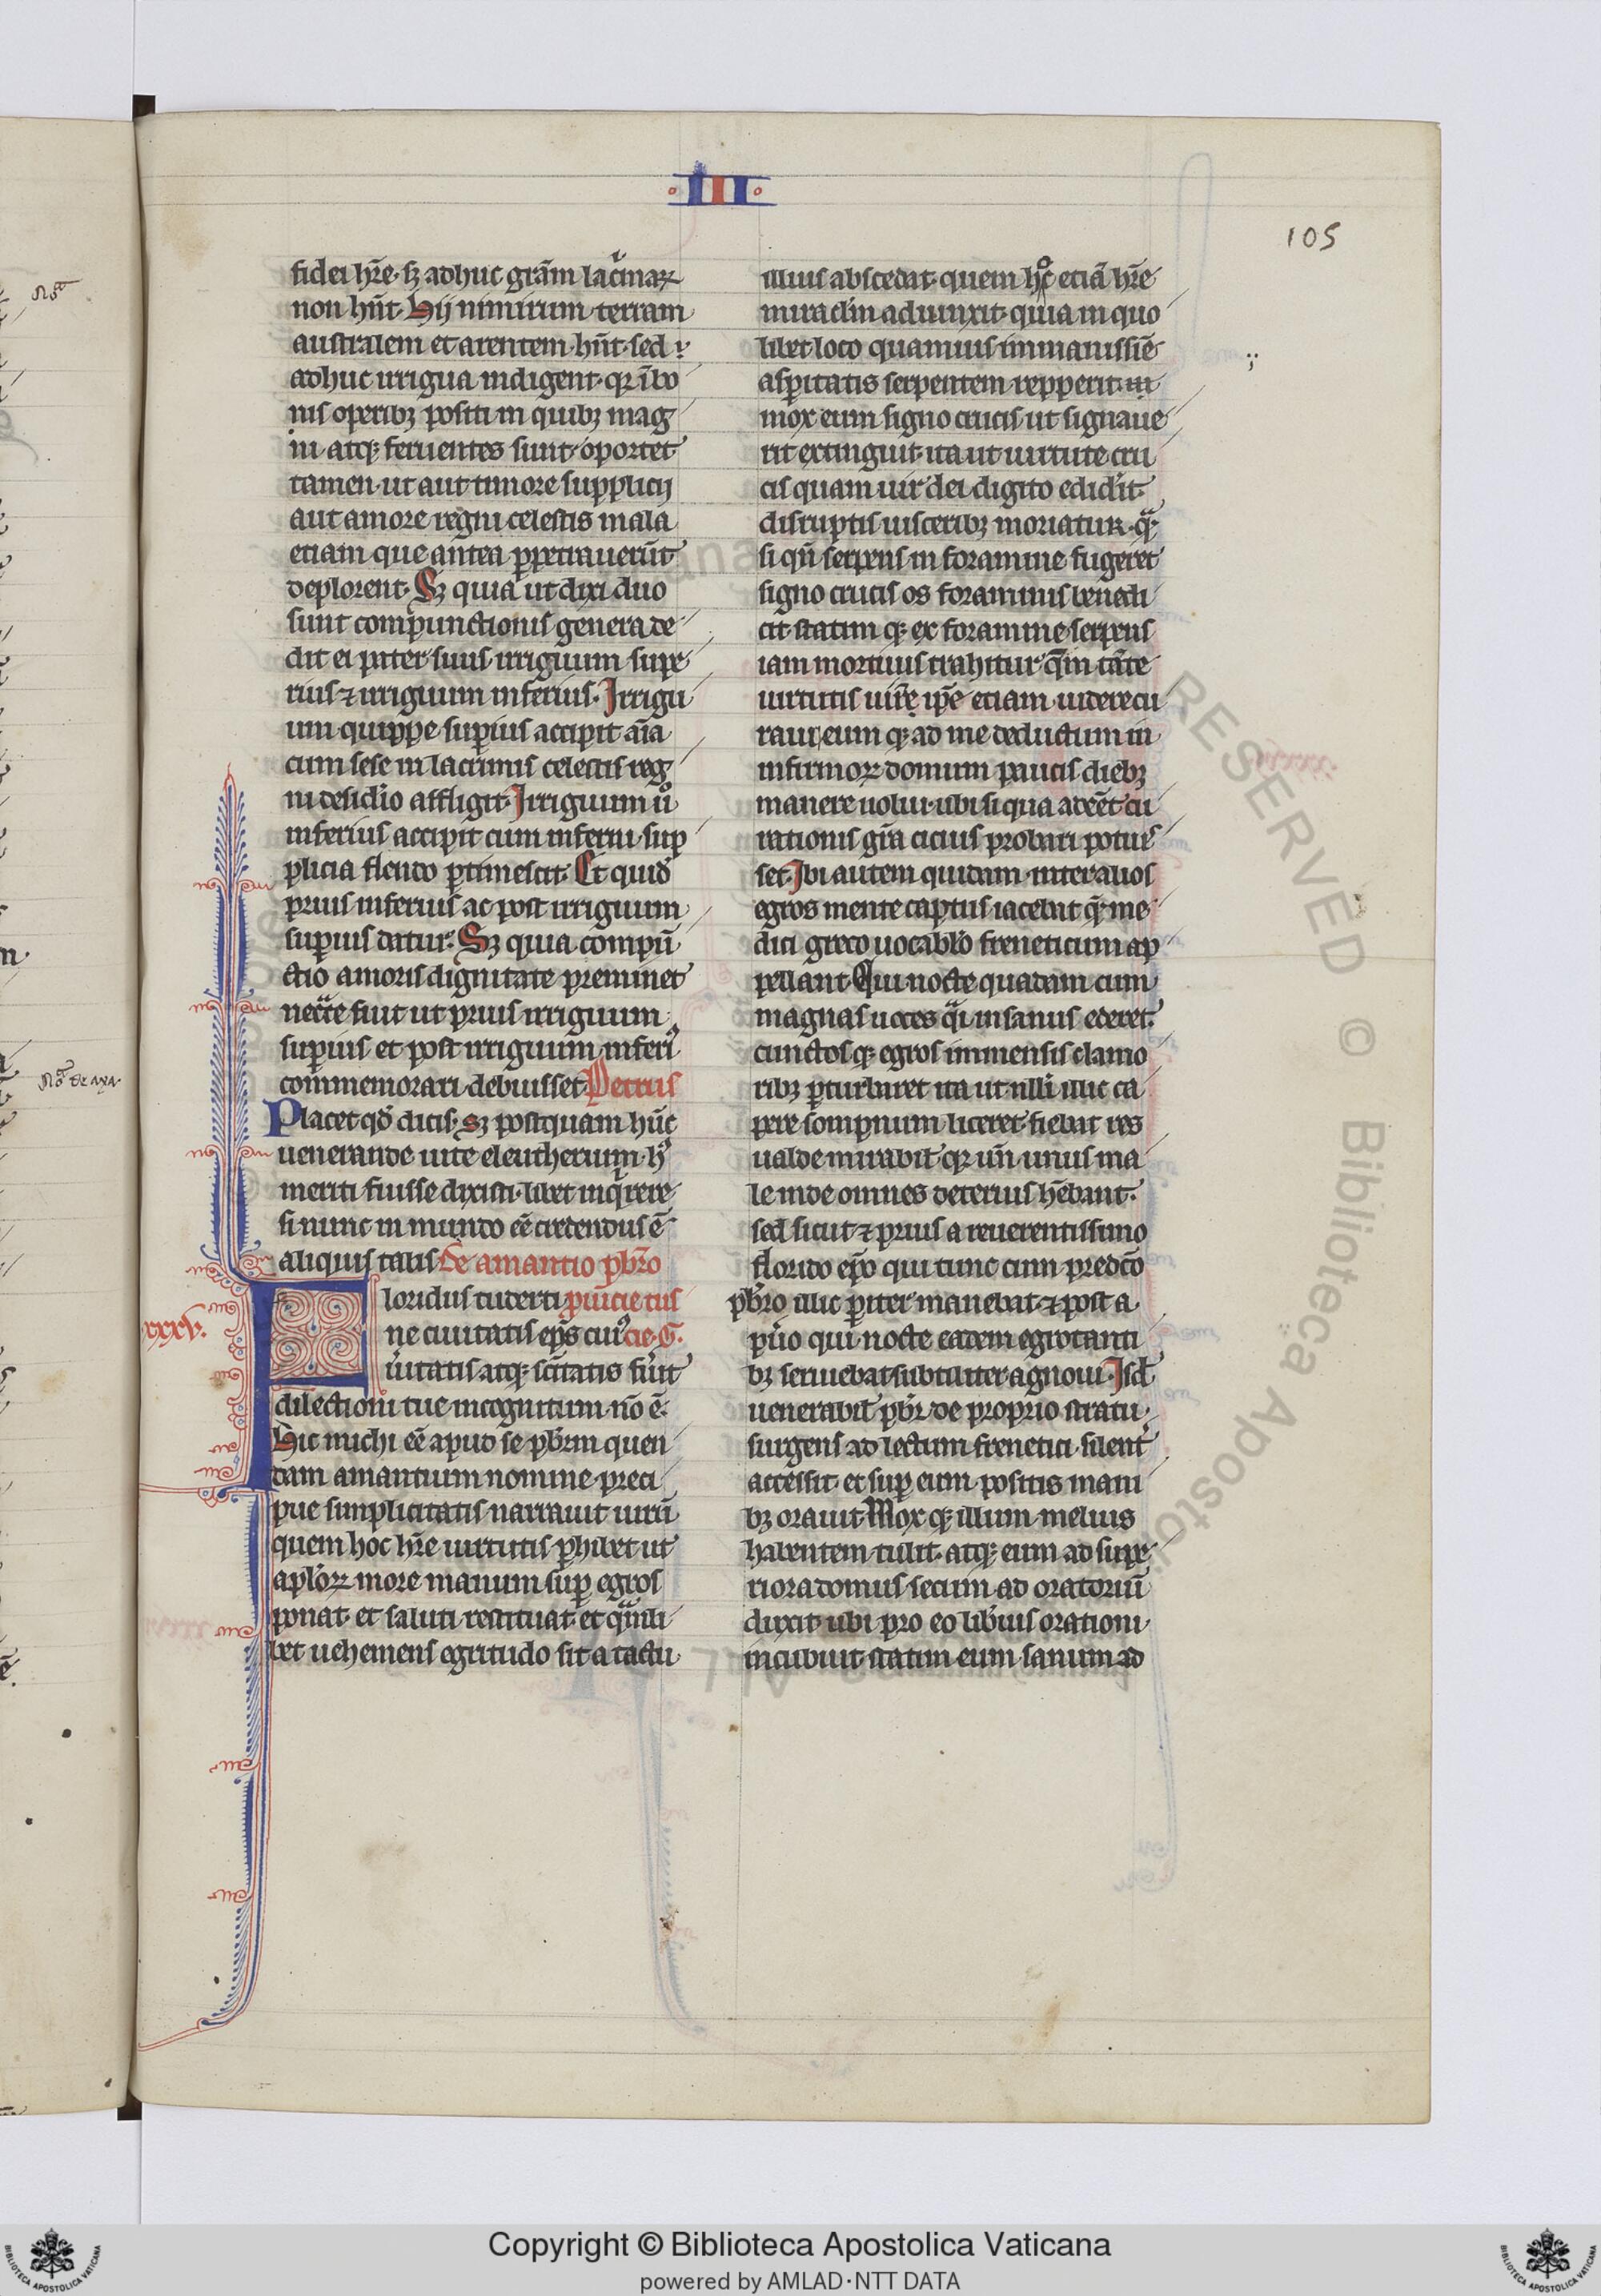 III
105
fidei hr̄e · sꝫ adhuc gr̄am lac̍maꝝ
non hn̄t · Hij nimirum terram
australem et arentem hn̄t · sed ⁊
adhuc irrigua indigent · qꝛ ībo
nis operibꝫ positi in quibꝫ mag
ni atqꝫ feruentes sunt · oportet
tamen ut aut timore supplicij
aut amore regni celestis mala
etiam que antea ꝑpetrauerūt
deplorent · Sꝫ quia ut dixi duo
sunt compunctionis genera de
dit ei pater suus irriguum supe
rius ⁊ irriguum inferius · Irrigu
um quippe suꝑius accipit aīa
cum sese in lacrimis celestis reg
ni desid̓io affligit · Irriguum u̓o
inferius accipit cum inferni sup
plicia flendo ꝑtimescit · Et quid̓
prius inferius ac post irriguum
suꝑius datur · Sꝫ quia compū
ctio amoris dignitate preminet
necc̄e fuit ut prius irriguum
suꝑius et post irriguum inferiꝰ
commemorari debuisset Petrus
Placet qd̓ dicis · sꝫ postquam hūc
uenerande uite eleutherium hꝰ
meriti fuisse dixisti · libet inq̍rere
si nunc in mundo eē credendus ē
aliquis talis De amantio pb̄ro
xxxv.
Floridus tiberti puīcie tus
ne ciuitatis ep̄s cuiꝰ cie · G ·
u̓itatis atqꝫ sc̄itatis fu̓it
dilectioni tue incognitum nō ē ·
Hic michi eē apud se pb̄rm quen
dam amantium nomine preci
pue simplicitatis narrauit uirū
quem hoc hr̄e uirtutis ꝑhibet ut
apl̓oꝝ more manum suꝑ egros
ponat et saluti restituat et qᵃmli
bet uehemens egritudo sit a tactu
illius abscedat · quem hͦc etiā hr̄e
miracl̓m adiunxit · quia in quo
libet loco quamuis immanissīe
asꝑitatis serpentem reppererit
mox eum signo crucis ut signaue
rit extinguit · ita ut uirtute cru
cis quam uir dei digito edid̓it
disruptis uisceribꝫ moriatur · qᵃ
si qn̄ serpens in foramine fugeret
signo crucis os foraminis benedi
cit statim qꝫ ex foramine serpens
iam mortuus trahitur qm̄ tāte
uirtutis uir̄e ip̄e etiam uidere cu
raui eum qꝫ ad me deductum in
infirmoꝝ domum paucis diebꝫ
manere uolui · ubi si qua adeēt cu
rationis gr̄a cicius probari potuis
set · Ibi autem quidam inter alios
egros mente captus iacebat qᵉ me
dici greco uocabl̓o freneticum ap
pellant · Qui nocte quadam cum
magnas uoces qᵃi insanus ederet ·
cunctosqꝫ egros immensis clamo
ribꝫ ꝑturbaret ita ut nlli illic ca
pere sompnum liceret · fiebat res
ualde mirabil̓ qꝛ un̄ unus ma
le inde omnes deterius hēbant ·
sed sicut ⁊ prius a reuerentissimo
florido ep̄o qui tunc cum predc̄o
pb̄ro illic ꝑiter manebat · ⁊ post a
pu̓o qui nocte eadem egrotanti
bꝫ seruiebat subtiliter agnoui · Isd̓
uenerabil̓ pb̄r de proprio stratu
surgens ad lectum frenetici silent̓
accessit · et suꝑ eum positis mani
bꝫ orauit · Mox qꝫ illum melius
habentem tulit · atqꝫ eum ad supe
riora domus secum ad oratoriū
duxit · ubi pro eo lib̓ius orationi
incubuit · statim eum sanum ad
Copyright © Biblioteca Apostolica Vaticana
powered by AMLAD·NTT DATA